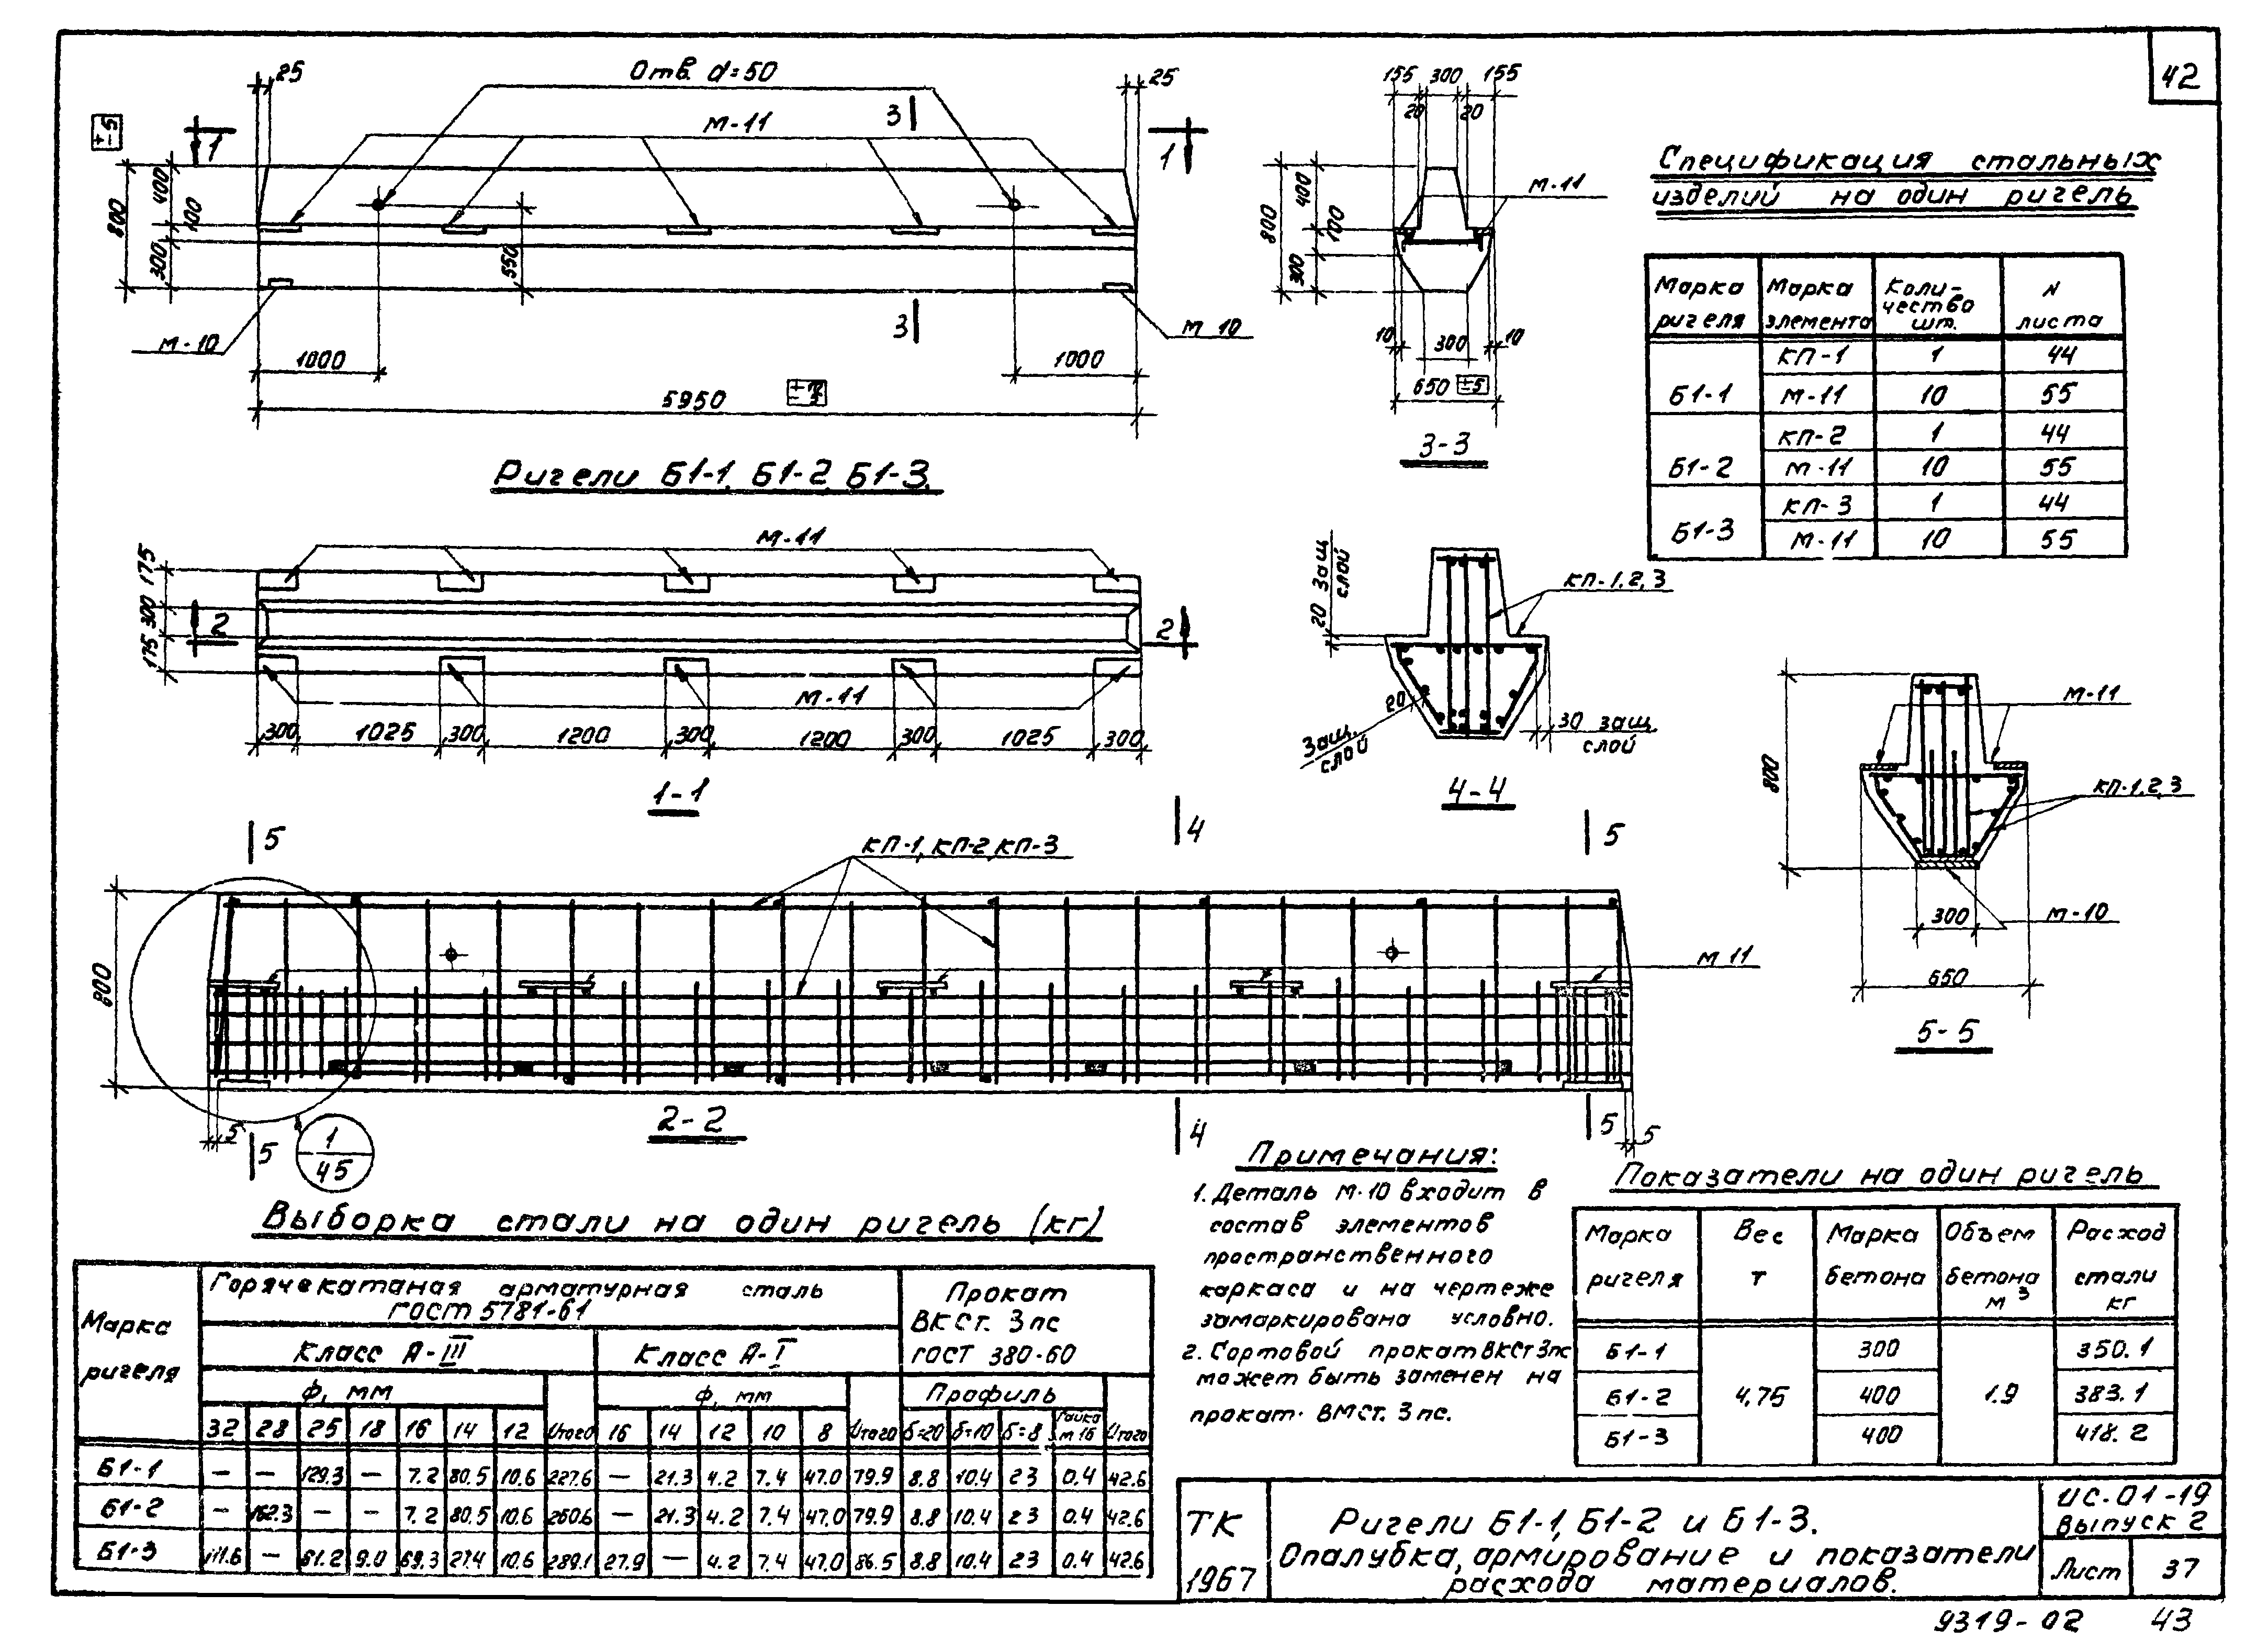 42
25
Отв. d=50
25
М-11
3
± 5
1
1
800
400
100
300
550
М-10
3
М 10
1000
1000
5950
Ригели Б1-1, Б1-2, Б1-3.
155 300 155
20 20
М-11
800
400
100
300
10 300 10
650 ±5
3-3
Спецификация стальных
изделий на один ригель
Марка ригеля | Марка элемента | Количество шт. | N листа
Б1-1 | КП-1 | 1 | 44
М-11 | 10 | 55
Б1-2 | КП-2 | 1 | 44
М-11 | 10 | 55
Б1-3 | КП-3 | 1 | 44
М-11 | 10 | 55
М-11
175
300
175
2
2
М-11
300 1025 300 1200 300 1200 300 1025 300
1-1
20 защ
слой
КП-1,2,3
20
Защ.
слой
30 защ
слой
4-4
М-11
800
КП-1,2,3
300
М-10
650
5-5
5
КП-1, КП-2, КП-3
4
5
800
М 11
5
5
1
45
2-2
4
5
5
Выборка стали на один ригель (кг)
Марка ригеля
Горячекатаная арматурная сталь
ГОСТ 5781-61
Прокат
ВКСт. 3пс
ГОСТ 380-60
Класс А-III
Класс А-I
ф, мм
ф, мм
Профиль
32 28 25 18 16 14 12 Итого 16 14 12 10 8 Итого б=20 б=10 б=8 Гайка м 16 Итого
Б1-1 — — 129.3 — 7.2 80.5 10.6 227.6 — 21.3 4.2 7.4 47.0 79.9 8.8 10.4 23 0.4 42.6
Б1-2 — 162.3 — — 7.2 80.5 10.6 260.6 — 21.3 4.2 7.4 47.0 79.9 8.8 10.4 23 0.4 42.6
Б1-3 111.6 — 61.2 9.0 69.3 27.4 10.6 289.1 27.9 — 4.2 7.4 47.0 86.5 8.8 10.4 23 0.4 42.6
Примечания:
1. Деталь М-10 входит в
состав элементов
пространственного
каркаса и на чертеже
замаркирована условно.
2. Сортовой прокат ВКСт 3пс
может быть заменен на
прокат ВМСт. 3пс.
Показатели на один ригель
Марка ригеля | Вес т | Марка бетона | Объем бетона м³ | Расход стали кг
Б1-1 | 300 | 350.1
Б1-2 | 4,75 | 400 | 1.9 | 383.1
Б1-3 | 400 | 418.2
ТК
1967
Ригели Б1-1, Б1-2 и Б1-3.
Опалубка, армирование и показатели
расхода материалов.
ИС-01-19
Выпуск 2
Лист 37
9319-02 43